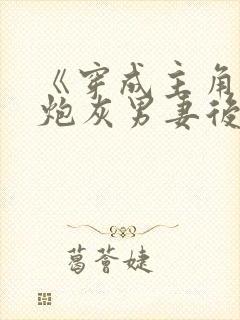 《穿成主角
炮灰男妻後
葛薈婕